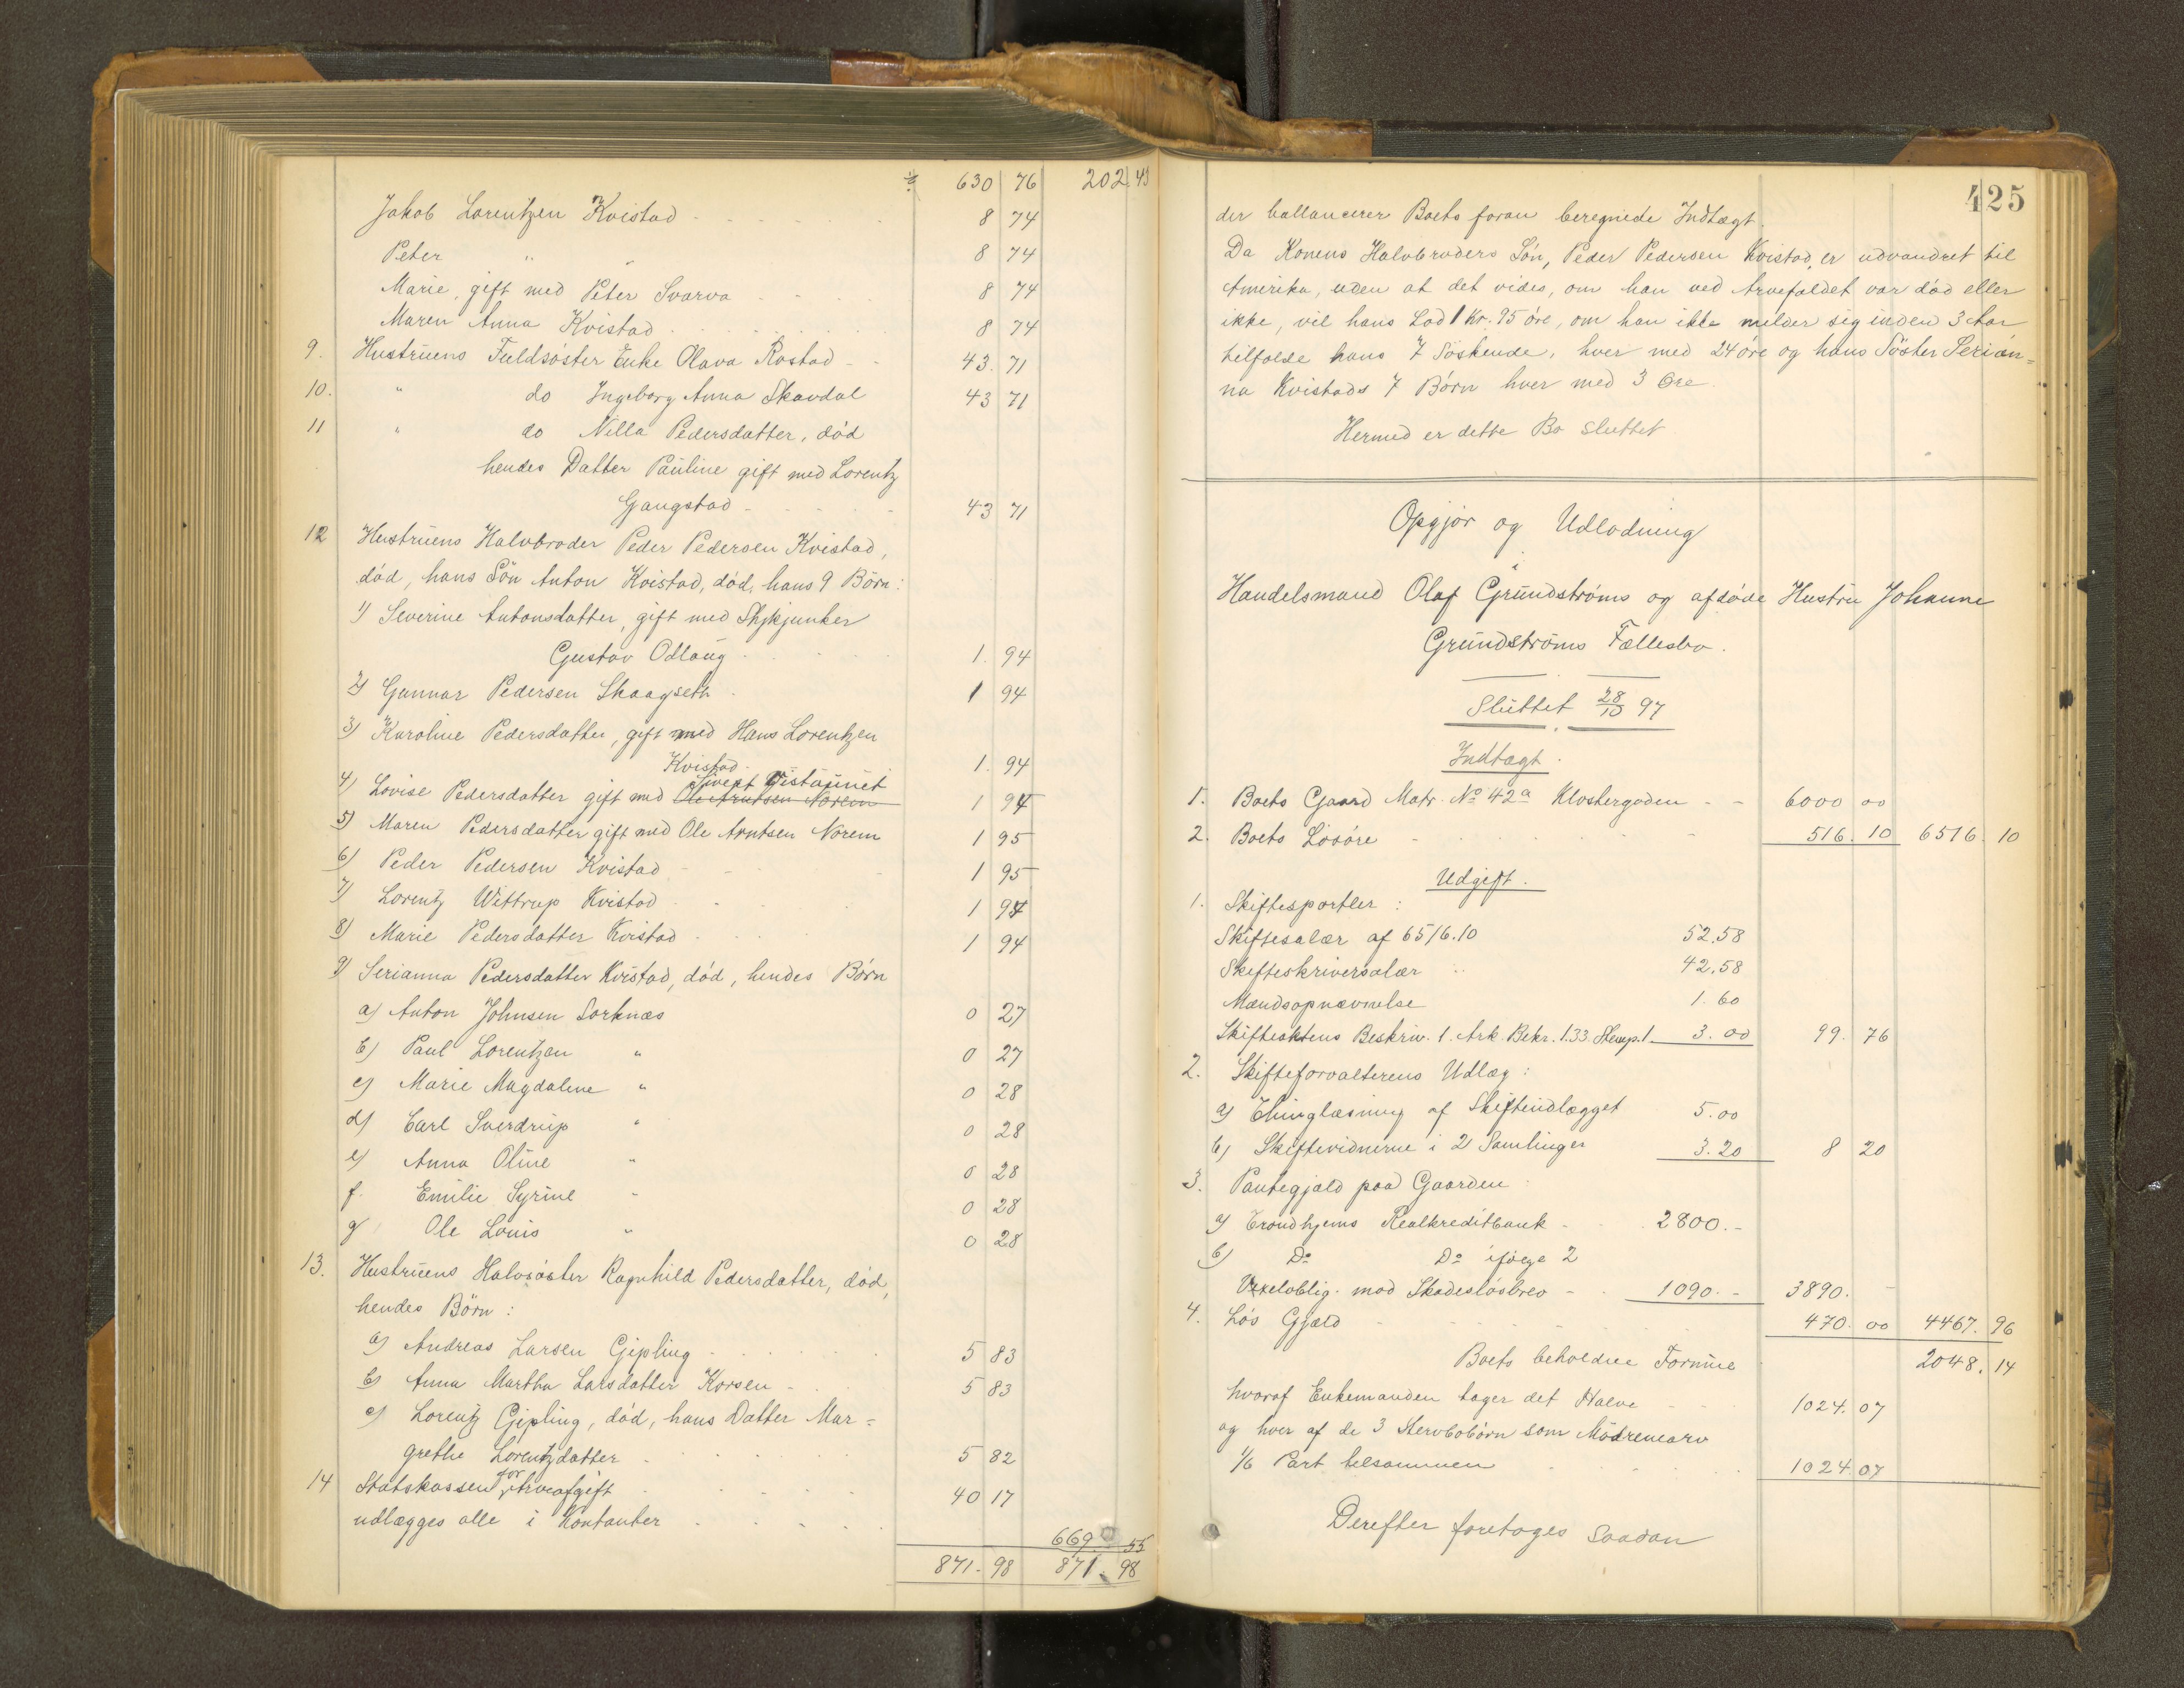 630 76 202. 43
Jakob Lorentzen Kvistad 8 74
Peter " " 8 74
Marie, gift med Peter Svarva 8 74
Maren Anna Kvistad 8 74
9. Hustruens Fuldsøster Enke Olava Rostad 43. 71
10. " do Ingeborg Anna Skavdal 43 71
11 " do Nella Pedersdatter, død
hendes Datter Pauline gift med Lorentz
Gangstad 43 71
12 Hustruens Halvbroder Peder Pedersen Kvistad,
død, hans Søn Anton Kvistad, død, hans 9 Børn:
1) Severine Antonsdatter, gift med
Gustav Odlaug 1. 94
2) Gunnar Pedersen Skaagseth 1 94
3) Karoline Pedersdatter, gift med Hans Lorentzen
Kvistad 1. 94
Sivert
4) Lovise Pedersdatter gift med Ole Arntsen Norem 1 94
5) Maren Pedersdatter gift med Ole Arntsen Norem 1 95
6) Peder Pedersen Kvistad 1 95
7) Lorentz Wittrup Kvistad 1 94
8) Marie Pedersdatter Kvistad 1 94
9) Serianna Pedersdatter Kvistad, død, hendes Børn
a) Anton Johnsen Sorknæs 0 27
b) Paul Lorentzen " 0 27
c) Marie Magdalene " 0 28
d) Carl Sverdrup " 0 28
e) Anna Oline " 0 28
f. Emilie Syrine " 0 28
g) Ole Louis " 0 28
13. Hustruens Halvsøster Ragnhild Pedersdatter, død,
hendes Børn:
a) Andreas Larsen Gipling 5 83
b) Anna Martha Larsdatter Korsen 5 83
c) Lorentz Gipling, død, hans Datter Mar=
grethe Lorentzdatter 5 82
14 Statskassen for Arveafgift 40 17
udlægges alle i Kontanter 669 55
871. 98 871. 98
425
der ballancerer Boets foran beregnede Indtægt.
Da Konens Halvbroders Søn, Peder Pedersen Kvistad, er udvandret til
Amerika, uden at det vides, om han ved Arvefaldet var død eller
ikke, vil hans Lod 1 Kr. 95 øre, om han ikke melder sig inden 3 Aar
tilfalde hans 7 Søskende, hver med 24 øre og hans Søster Serian=
na Kvistads 7 Børn hver med 3 Øre.
Hermed er dette Bo sluttet
Opgjør og Udlodning
i
Handelsmand Olaf Grundstrøms og afdøde Hustru Johanne
Grundstrøms Fællesbo.
Sluttet 28/10 97
Indtægt.
1. Boets Gaard Matr. No 42a Klostergaden 6000 00
2. Boets Løsøre 516. 10 6516. 10
Udgift.
1. Skiftesportler:
Skiftesalær af 6516.10 52.58
Skifteskriversalær 42.58
Mandsopnævnelse 1.60
Skifteaktens Beskriv. 1. Ark. Bekr. 1.33. Stemp. 1 3.00 99. 76
2. Skifteforvalterens Udlæg:
a) Thinglæsning af Skifteudlægget 5.00
b) Skiftevidnerne i 2 Samlinger 3.20 8 20
3. Pantegjæld paa Gaarden:
a) Trondhjems Realkreditbank 2800.-
b) Do Do ifølge 2
Vexeloblig. mod Skadesløsbrev 1090.- 3890. -
4. Løs Gjæld 470. 00 4467. 96
Boets beholdne Formue 2048. 14
hvoraf Enkemanden tager det Halve 1024. 07
og hver af de 3 Stervbobørn som Mødrenearv
1/6 Part tilsammen 1024 07
Derefter foretages saadan